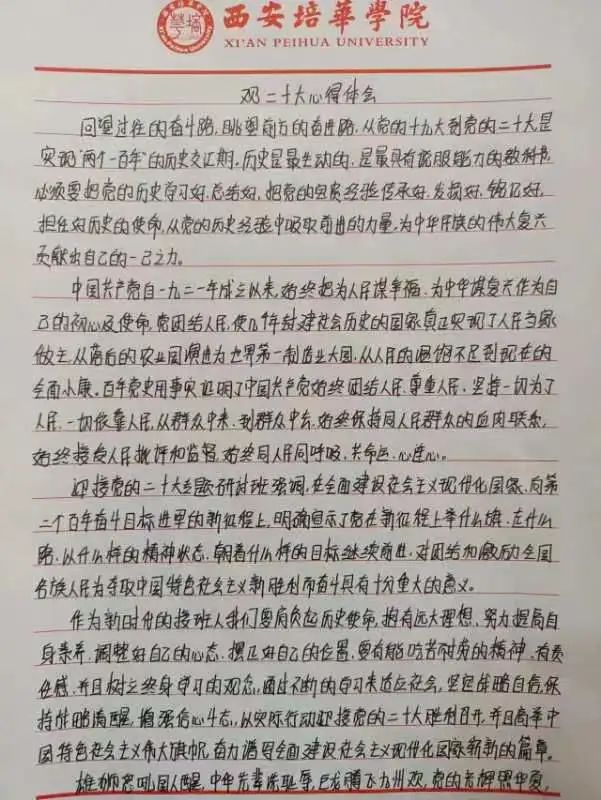 西安培華學院
XI'AN PEIHUA UNIVERSITY
观二十大心得体会
回望过往的奋斗路，眺望前方的奋进路，从党的十九大到党的二十大是
实现“两个一百年”的历史交汇期。历史是最生动的、是最具有说服能力的教科书，
必须要把党的历史学习好、总结好，把党的宝贵经验传承好、发扬好，铭记好，
担任好历史的使命，从党的历史经验中吸取前进的力量，为中华民族的伟大复兴
贡献出自己的一己之力。
中国共产党自一九二一年成立以来，始终把为人民谋幸福、为中华谋复兴作为自
己的初心及使命，党团结人民，使几千年封建社会历史的国家真正实现了人民当家
做主，从落后的农业国演进为世界第一制造业大国，从人民的温饱不足到现在的
全面小康。百年党史用事实证明了中国共产党始终团结人民、尊重人民、坚持一切为了
人民、一切依靠人民，从群众中来、到群众中去，始终保持同人民群众的血肉联系，
始终接受人民批评和监督，始终同人民同呼吸、共命运、心连心。
迎接党的二十大专题研讨班强调，在全面建设社会主义现代化国家、向第
二个百年奋斗目标进军的新征程上，明确宣示了党在新征程上举什么旗、走什么
路、以什么样的精神状态、朝着什么样的目标继续前进，对团结和激励全国
各族人民为夺取中国特色社会主义新胜利而奋斗具有十分重大的意义。
作为新时份的接班人我们要肩负起历史使命，拥有远大理想，努力提高自
身素养，调整好自己的心态，摆正好自己的位置，要有能吃苦耐劳的精神，有责
任感，并且树立终身学习的观念，通过不断的学习来适应社会，坚定战略自信，保
持战略清醒，增强信心斗志，以实际行动迎接党的二十大胜利召开，并且高举中
国特色社会主义伟大旗帜，奋力谱写全面建设社会主义现代化国家崭新的篇章。
雄狮怒吼国人醒，中华先辈洗耻辱，巨龙腾飞九州欢，党的光辉照华夏，